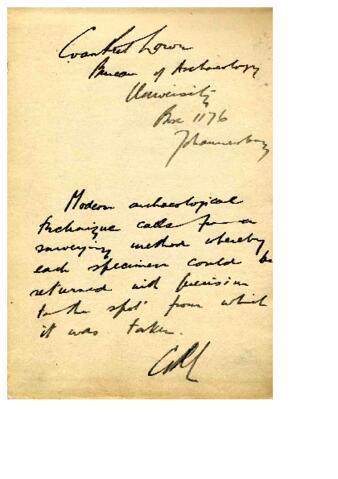 C van Riet Lowe
Bureau of Archaeology
University
Box 1176
Johannesburg
Modern archaeological
technique calls for a
surveying method whereby
each specimen could be
returned with precision
to the spot from which
it was taken.